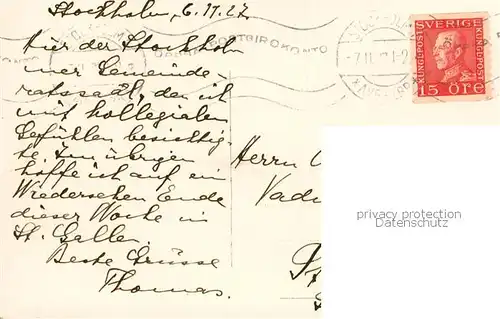 Stockholm, 6.11.27
Hier der Stockhol-
mer Gemeinde-
ratssaal, den ich
mit kollegialen
Gefühlen besichtig-
te. Im übrigen
hoffe ich auf ein
Wiedersehen Ende
dieser Woche in
St. Gallen
Beste Grüsse
Thomas.
POSTGIROKONTO
SVERIGE
KUNGSPOST
KUNGSPOST
15 ÖRE
Herrn
Vadi
privacy protection
www.ansichtskartenversand.com